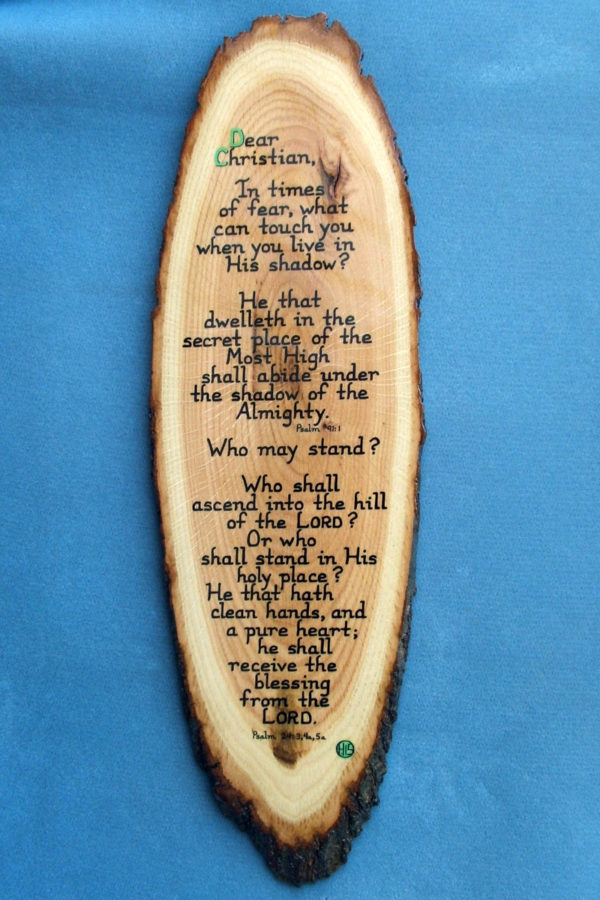 Dear
Christian,
In times
of fear, what
can touch you
when you live in
His shadow?
He that
dwelleth in the
secret place of the
Most High
shall abide under
the shadow of the
Almighty.
Psalm 91:1
Who may stand?
Who shall
ascend into the hill
of the LORD?
Or who
shall stand in His
holy place?
He that hath
clean hands, and
a pure heart;
he shall
receive the
blessing
from the
LORD.
Psalm 24:3,4a,5a
HIS